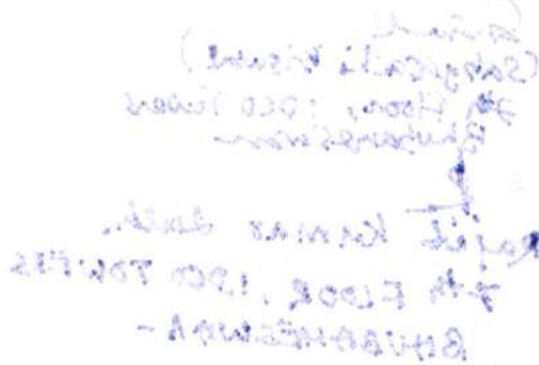 (Sabyasachi Biswal)
7th Floor, IDCO Towers
Bhubaneswar
Kumar
7th FLOOR, IDCO TOWERS
BHUBANESWAR-